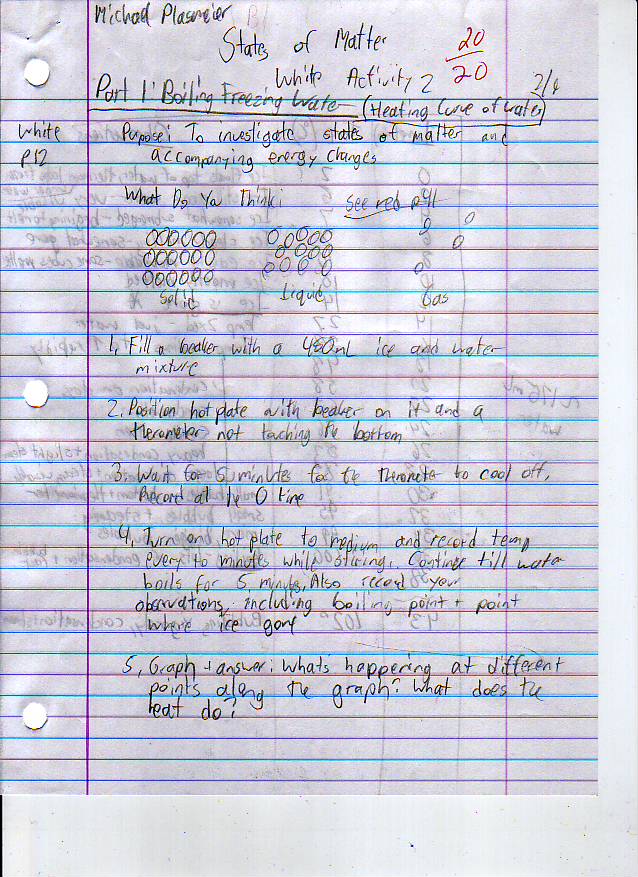 Michael Plasmeier
States of Matter
20
20
White Activity 2
2/9
Part 1: Boiling Freezing Water (Heating Curve of water)
White
p12
Purpose: To investigate states of matter and
accompanying energy changes
What Do Ya Think:
see red p41
Solid
Liquid
Gas
1, Fill a beaker with a 400mL ice and water
mixture
2. Position hot plate with beaker on it and a
thermometer not touching the bottom
3. Wait for 5 minutes for the thermometer to cool off,
Record at the 0 time
4, Turn on hot plate to medium and record temp
every to minutes while stiring. Continue till water
boils for 5 minute, Also record your
observations, including boiling point + point
where ice gone
5, Graph + answer: Whats happening at different
points along the graph? What does the
heat do?